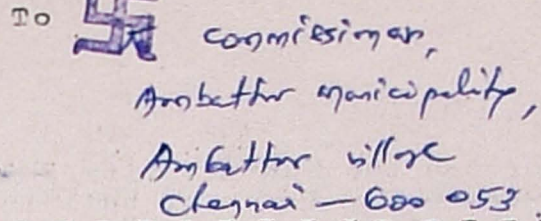 To The Commissioner,
Ambattur Municipality,
Ambattur village
Chennai - 600 053.